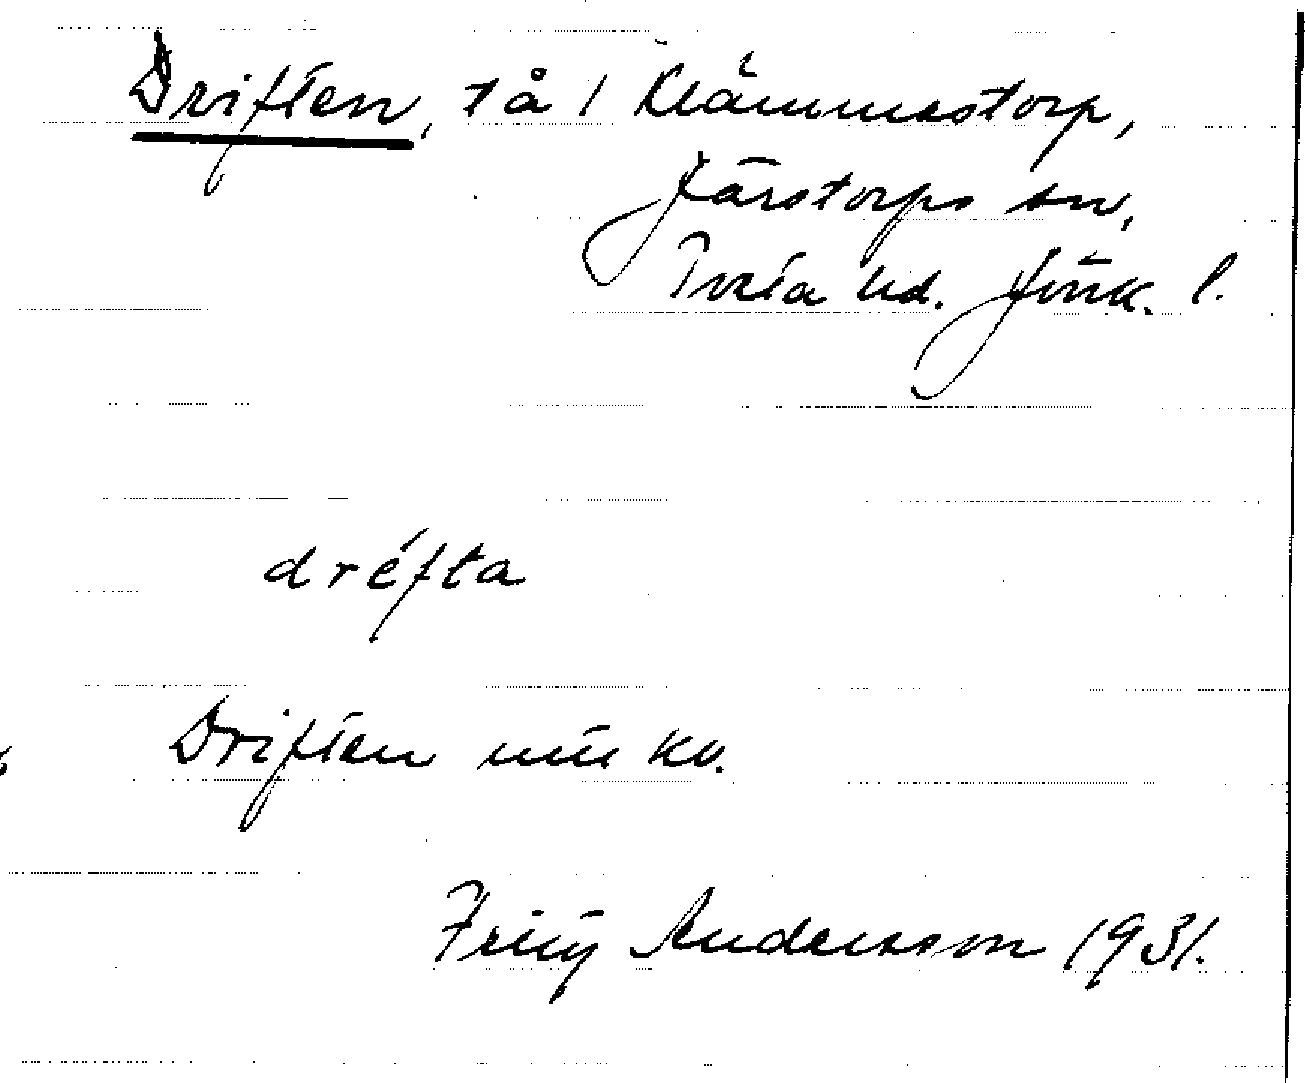 Driften, tå i Klämmestorp,
Järstorps sn,
Tveta hd. Jönk. l.
dréfta
Driften mit kv.
Fritz Andersson 1931.